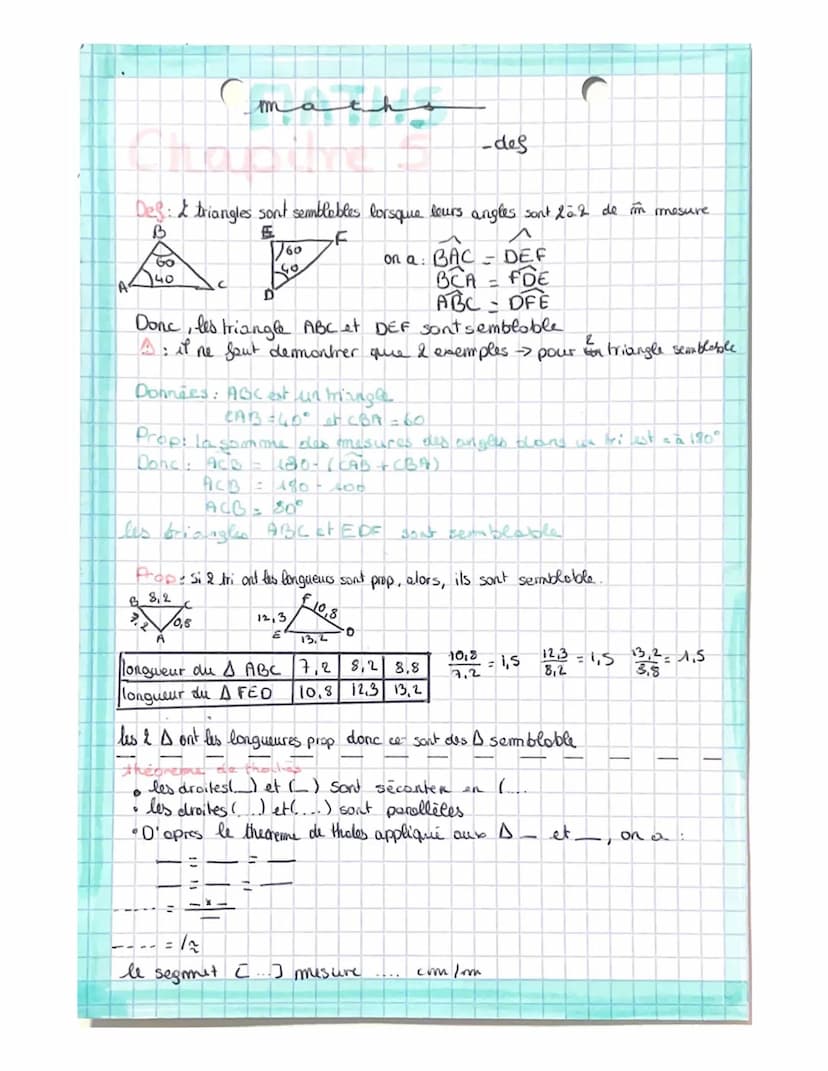 MATHS
maths
Chapitre 5
-def
Def: 2 triangles sont semblables lorsque leurs angles sont 2 à 2 de m̂ mesure
B
60
40
A
C
E
F
60
40
D
on a: BÂC = DÊF
BĈA = FD̂E
AB̂C = DF̂E
Donc, les triangle ABC et DEF sont semblable
⚠: il ne faut demontrer que 2 exemples → pour 2 triangle semblable
Données: ABC est un triangle
CAB = 40° et CBA = 60
Prop: la somme des mesures des angles dans un tri est = à 180°
Donc: ACB = 180 - (CÂB + CBA)
ACB = 180 - 100
ACB = 80°
les triangles ABC et EDF sont semblable
Prop: Si 2 tri ont les longueurs sont prop, alors, ils sont semblable.
B 8,2 C
7,2
A
F
10,8
12,3
E
13,2
D
longueur du Δ ABC 7,2 8,2 8,8
longueur du Δ FED 10,8 12,3 13,2
10,8/7,2 = 1,5 12,3/8,2 = 1,5 13,2/8,8 = 1,5
les 2 Δ ont les longueures prop donc ce sont des Δ semblable
théoreme de thalès
• les droites(_) et (_) sont sécantes en (...
• les droites (...) et(....) sont parallèles
• D'apres le theoreme de thales appliqué aux Δ _ et __, on a :
__ = __ = __
__ = __ = __
..... = -x-/__
---- = /≈
le segmet [...] mesure .... cm/m